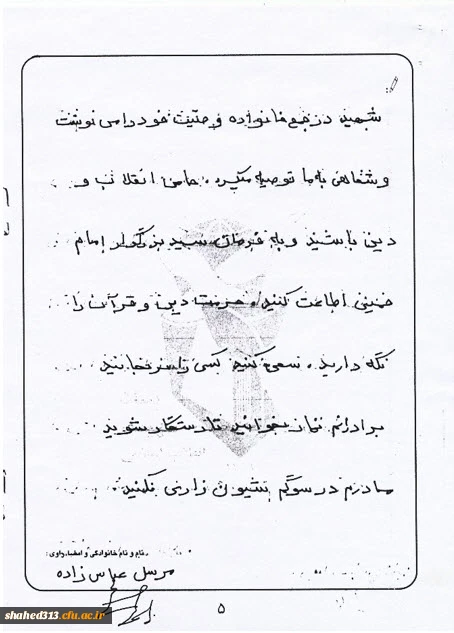 شهید در جمع خانواده وصیت خود را می نوشت
و شفاهی به ما توصیه میکرد. حامی انقلاب و
دین باشید و به فرمان سید بزرگوار امام
خمینی اطاعت کنید. حرمت دین و قرآن را
نگه دارید. سعی کنید کسی را نرنجانید
برادرانم نماز بخوانید تا رستگار شوید
مادرم در سوگم شیون زاری نکنید.
نام و نام خانوادگی و امضاء راوی:
مرسل عباس زاده
۵
shahed313.cfu.ac.ir